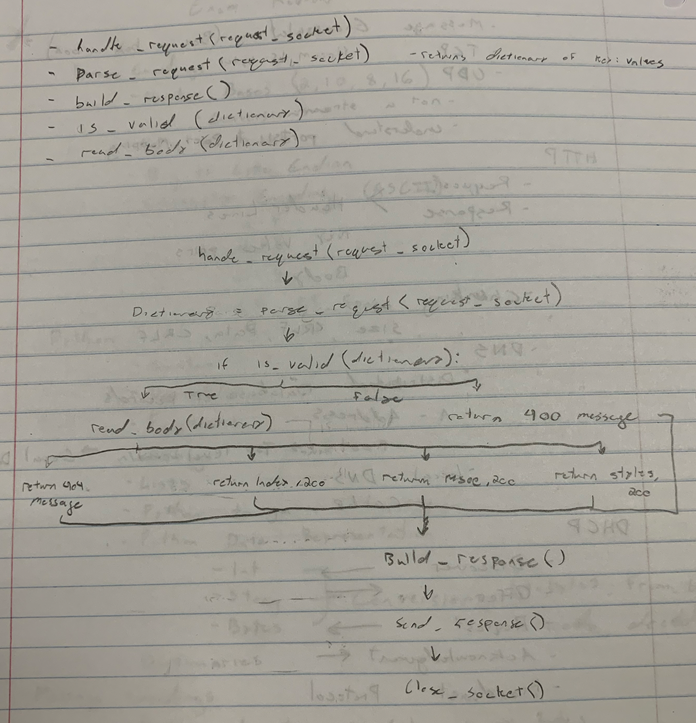 - handle_request(request_socket)
- Parse_request(request_socket) - returns dictionary of key: values
- build_response()
- is_valid (dictionary)
- read_body(dictionary)
HTTP
- Response
Body
- DNS
DHCP
Protocol
handle_request(request_socket)
Dictionary = parse_request(request_socket)
if is_valid(dictionary):
True False
read_body(dictionary) return 400 message
return 404 message return index, 200 return msoe, 200 return styles, 200
Build_response()
Send_response()
Close_socket()